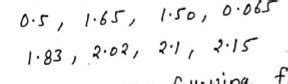 0.5, 1.65, 1.50, 0.065
1.83, 2.02, 2.1, 2.15